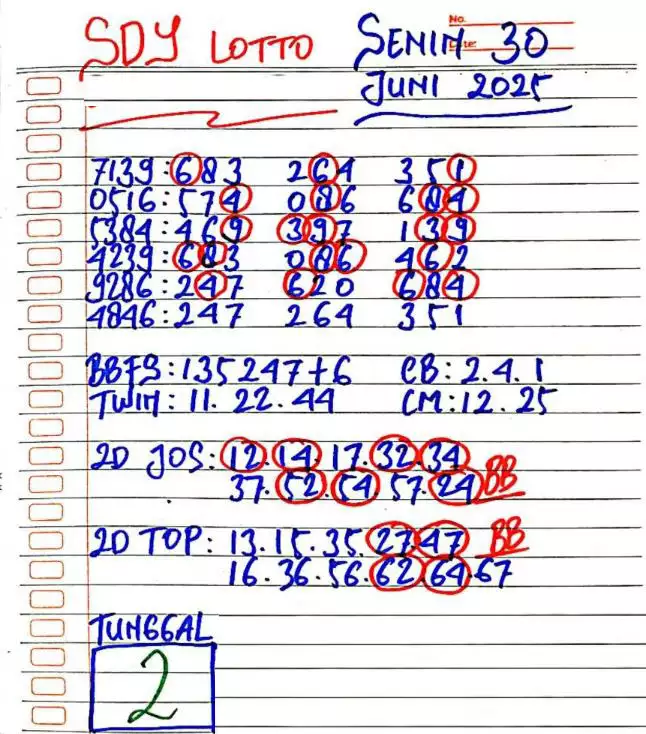 No.
SDY LOTTO SENIN 30
Date:
JUNI 2025
7139:683 264 351
0516:574 086 684
5384:469 397 139
4239:683 086 462
9286:247 620 684
4846:247 264 351
BBFS:135247+6 CB:2.4.1
TWIN:11.22.44 CM:12.25
2D JOS:12.14.17.32.34
37.52.54.57.24 BB
2D TOP:13.15.35.27.47 BB
16.36.56.62.64.67
TUNGGAL
2